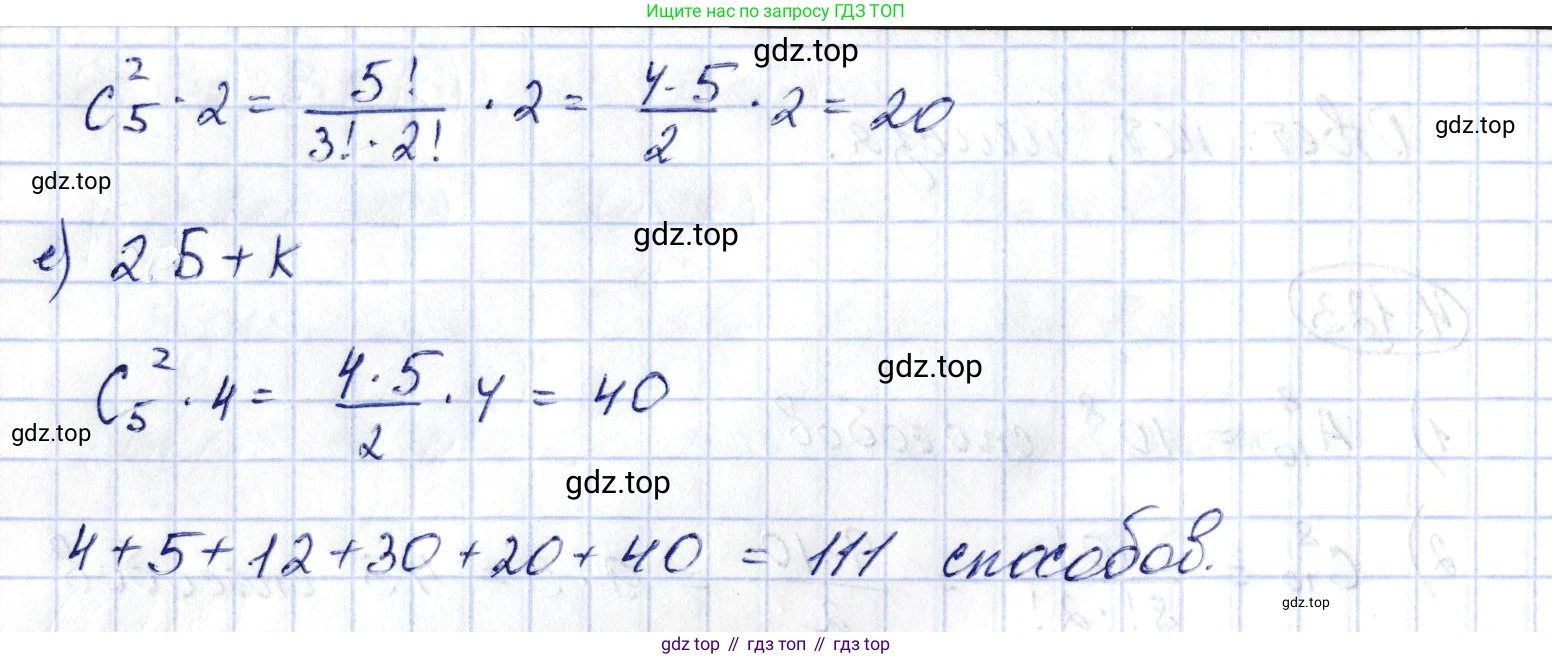 Ищите нас по запросу ГДЗ ТОП
gdz.top
C₅² · 2 = 5!/(3! · 2!) · 2 = (4 · 5)/2 · 2 = 20
gdz.top
gdz.top
gdz.top
е) 2 Б + К
C₅² · 4 = (4 · 5)/2 · 4 = 40
gdz.top
gdz.top
gdz.top
4 + 5 + 12 + 30 + 20 + 40 = 111 способов.
gdz.top
gdz top // гдз топ // гдз top